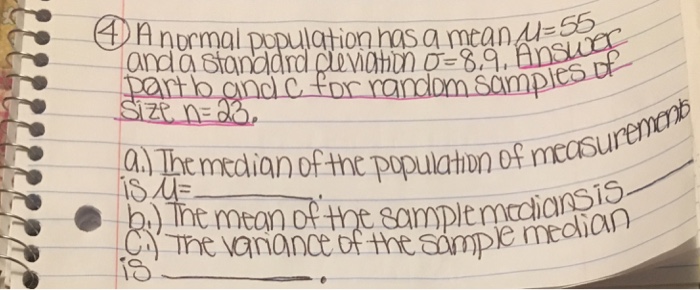 ④ A normal population has a mean μ=55
and a standard deviation σ=8.9. Answer
part b and c for random samples of
size n=23.
a.) The median of the population of measurements
is μ=________.
b.) The mean of the sample medians is ______
C.) The variance of the sample median
is ________.